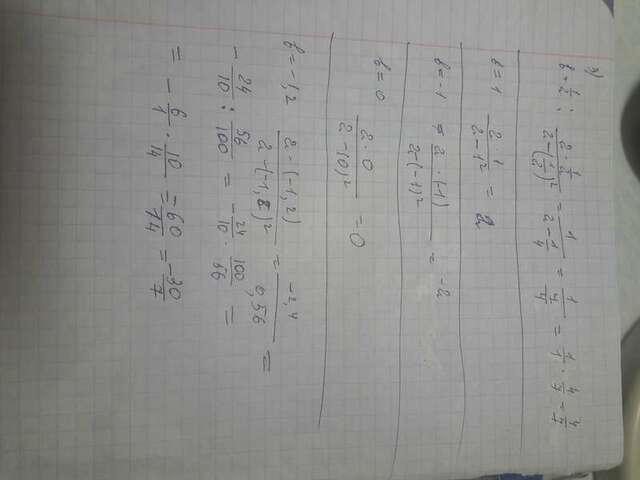 г)
b = 1/2 ; 2 · 1/2 / 2 - (1/2)² = 1 / 2 - 1/4 = 1 / 7/4 = 1/1 · 4/7 = 4/7
b = 1 2 · 1 / 2 - 1² = 2
b = -1 = 2 · (-1) / 2 - (-1)² = -2
b = 0 2 · 0 / 2 - (0)² = 0
b = -1,2 2 · (-1,2) / 2 - (-1,2)² = -2,4 / 0,56 =
- 24/10 : 56/100 = - 24/10 · 100/56 =
= - 6/1 · 10/14 = -60/14 = -30/7